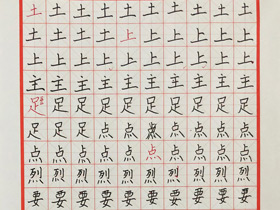 土土土土土土土土土土
土土土土上上上上上上
上上上上上上上上上上
主主主主主主主主主主
足足足足足足足足足足
足足足足点点点点点点
点点点点点点点点点点
烈烈烈烈烈烈烈烈烈烈
要要要要要要要要要要